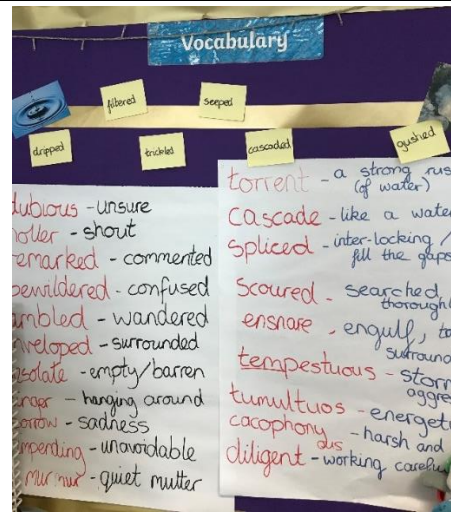 Vocabulary
filtered
seeped
dripped
trickled
cascaded
gushed
dubious - unsure
holler - shout
remarked - commented
bewildered - confused
ambled - wandered
enveloped - surrounded
desolate - empty/barren
linger - hanging around
sorrow - sadness
impending - unavoidable
murmur - quiet mutter
torrent - a strong rus
(of water)
cascade - like a water
spliced - inter-locking /
fill the gaps
scoured - searched
thorough
ensnare - engulf,
surround
tempestuous - storm
aggre
tumultuos - energet
cacophony - harsh and
dis
diligent - working careful